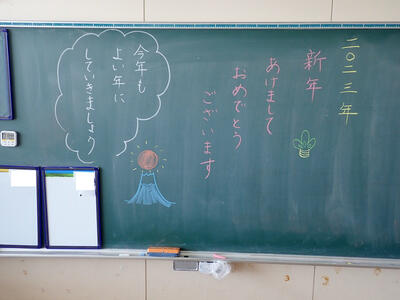 二〇二三年
新年
あけまして
おめでとう
ございます
今年も
よい年に
していきましょう